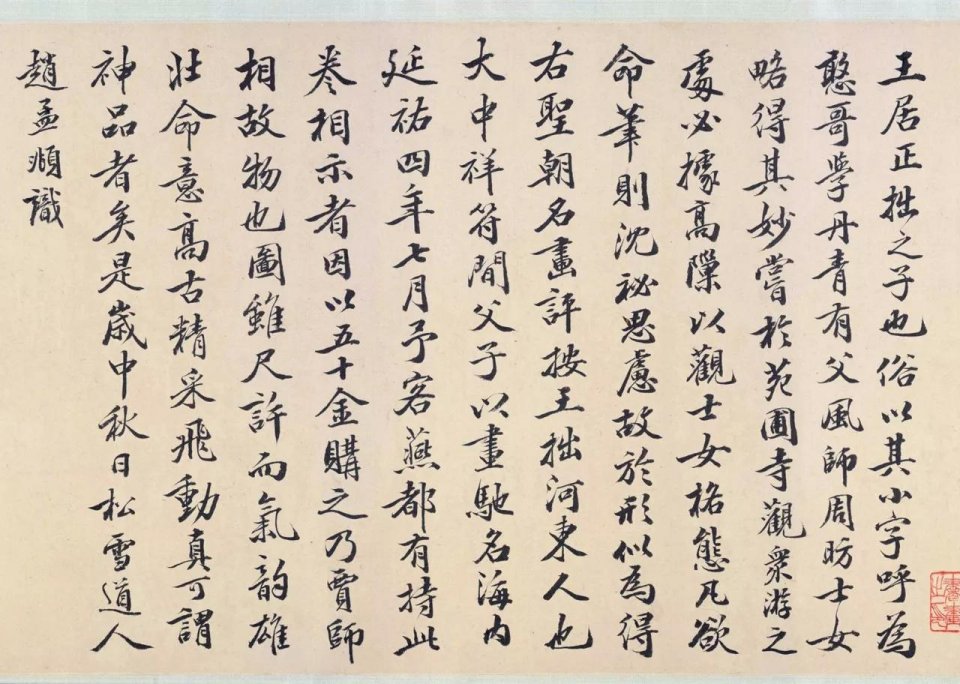 王居正拙之子也俗以其小字呼為
憨哥學丹青有父風師周昉士女
略得其妙嘗於苑圃寺觀衆游之
處必據高隟以觀士女格態凡欲
命筆則沈祕思慮故於形似為得
右聖朝名畫評按王拙河東人也
大中祥符間父子以畫馳名海內
延祐四年七月予客燕都有持此
卷相示者因以五十金購之乃賈師
相故物也圖雖尺許而氣韵雄
壯命意高古精采飛動真可謂
神品者矣是歲中秋日松雪道人
趙孟頫識